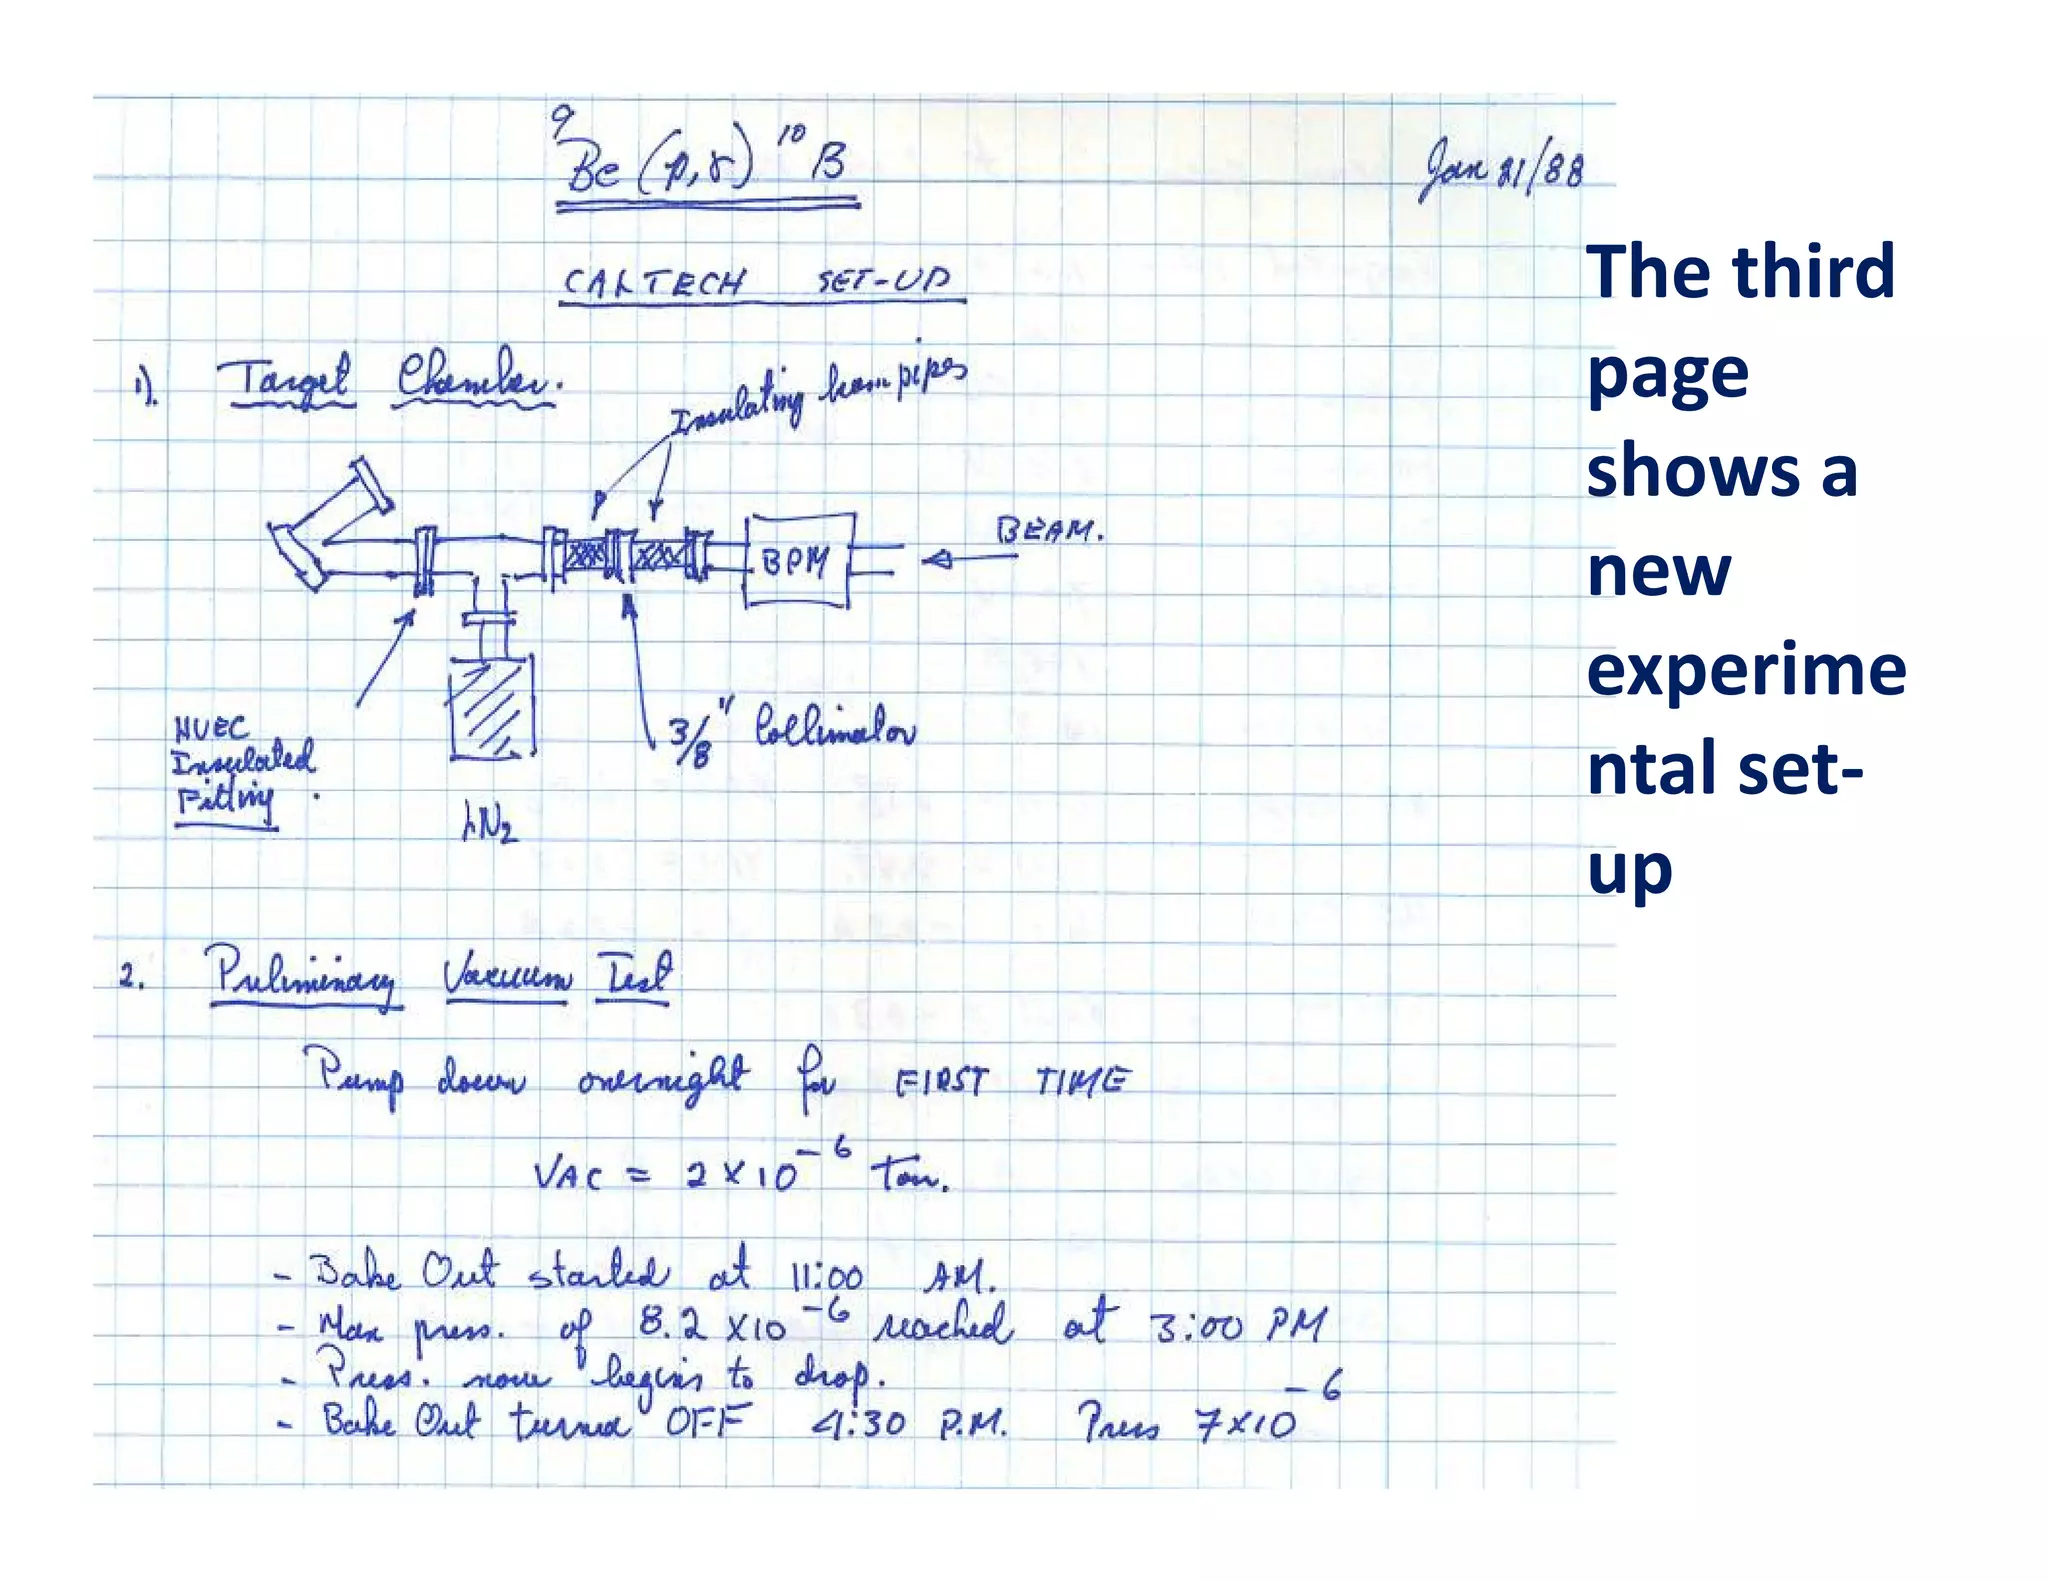 ⁹Be (p,γ) ¹⁰B
Jan 21/88
CALTECH SET-UP
1). Target Chamber.
Insulating beam pipes
BEAM.
BPM
3/8" Collimator
Insulated
Fitting.
LN₂
2. Preliminary Vacuum Test
Pump down overnight for FIRST TIME
VAC = 2 × 10⁻⁶ Torr.
- Bake Out started at 11:00 AM.
- Max press. of 8.2 ×10⁻⁶ reached at 3:00 PM
- Press. now begins to drop.
- Bake Out turned OFF 4:30 P.M. Press 7×10⁻⁶
The third
page
shows a
new
experime
ntal set-
up